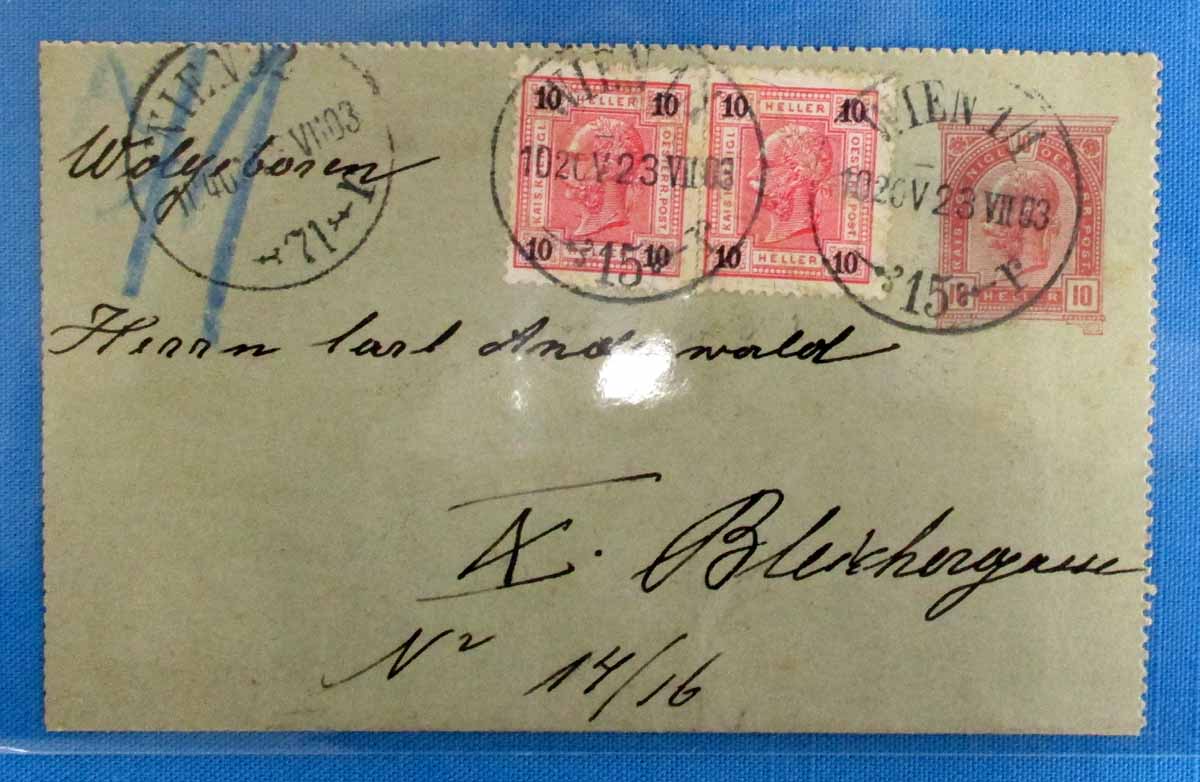 WIEN
VII 03
71
WIEN 1/1
10 20 V 23 VII 03
15
WIEN 1/1
10 20 V 23 VII 03
15
10 HELLER 10
KAIS. KÖNIGL. OESTERR. POST
10 HELLER 10
10 HELLER 10
KAIS. KÖNIGL. OESTERR. POST
10 HELLER 10
KAIS. KÖNIGL. OESTERR. POST.
10 HELLER 10
Wolgeboren
Herrn Carl
IX. Bleichergasse
No 14/16